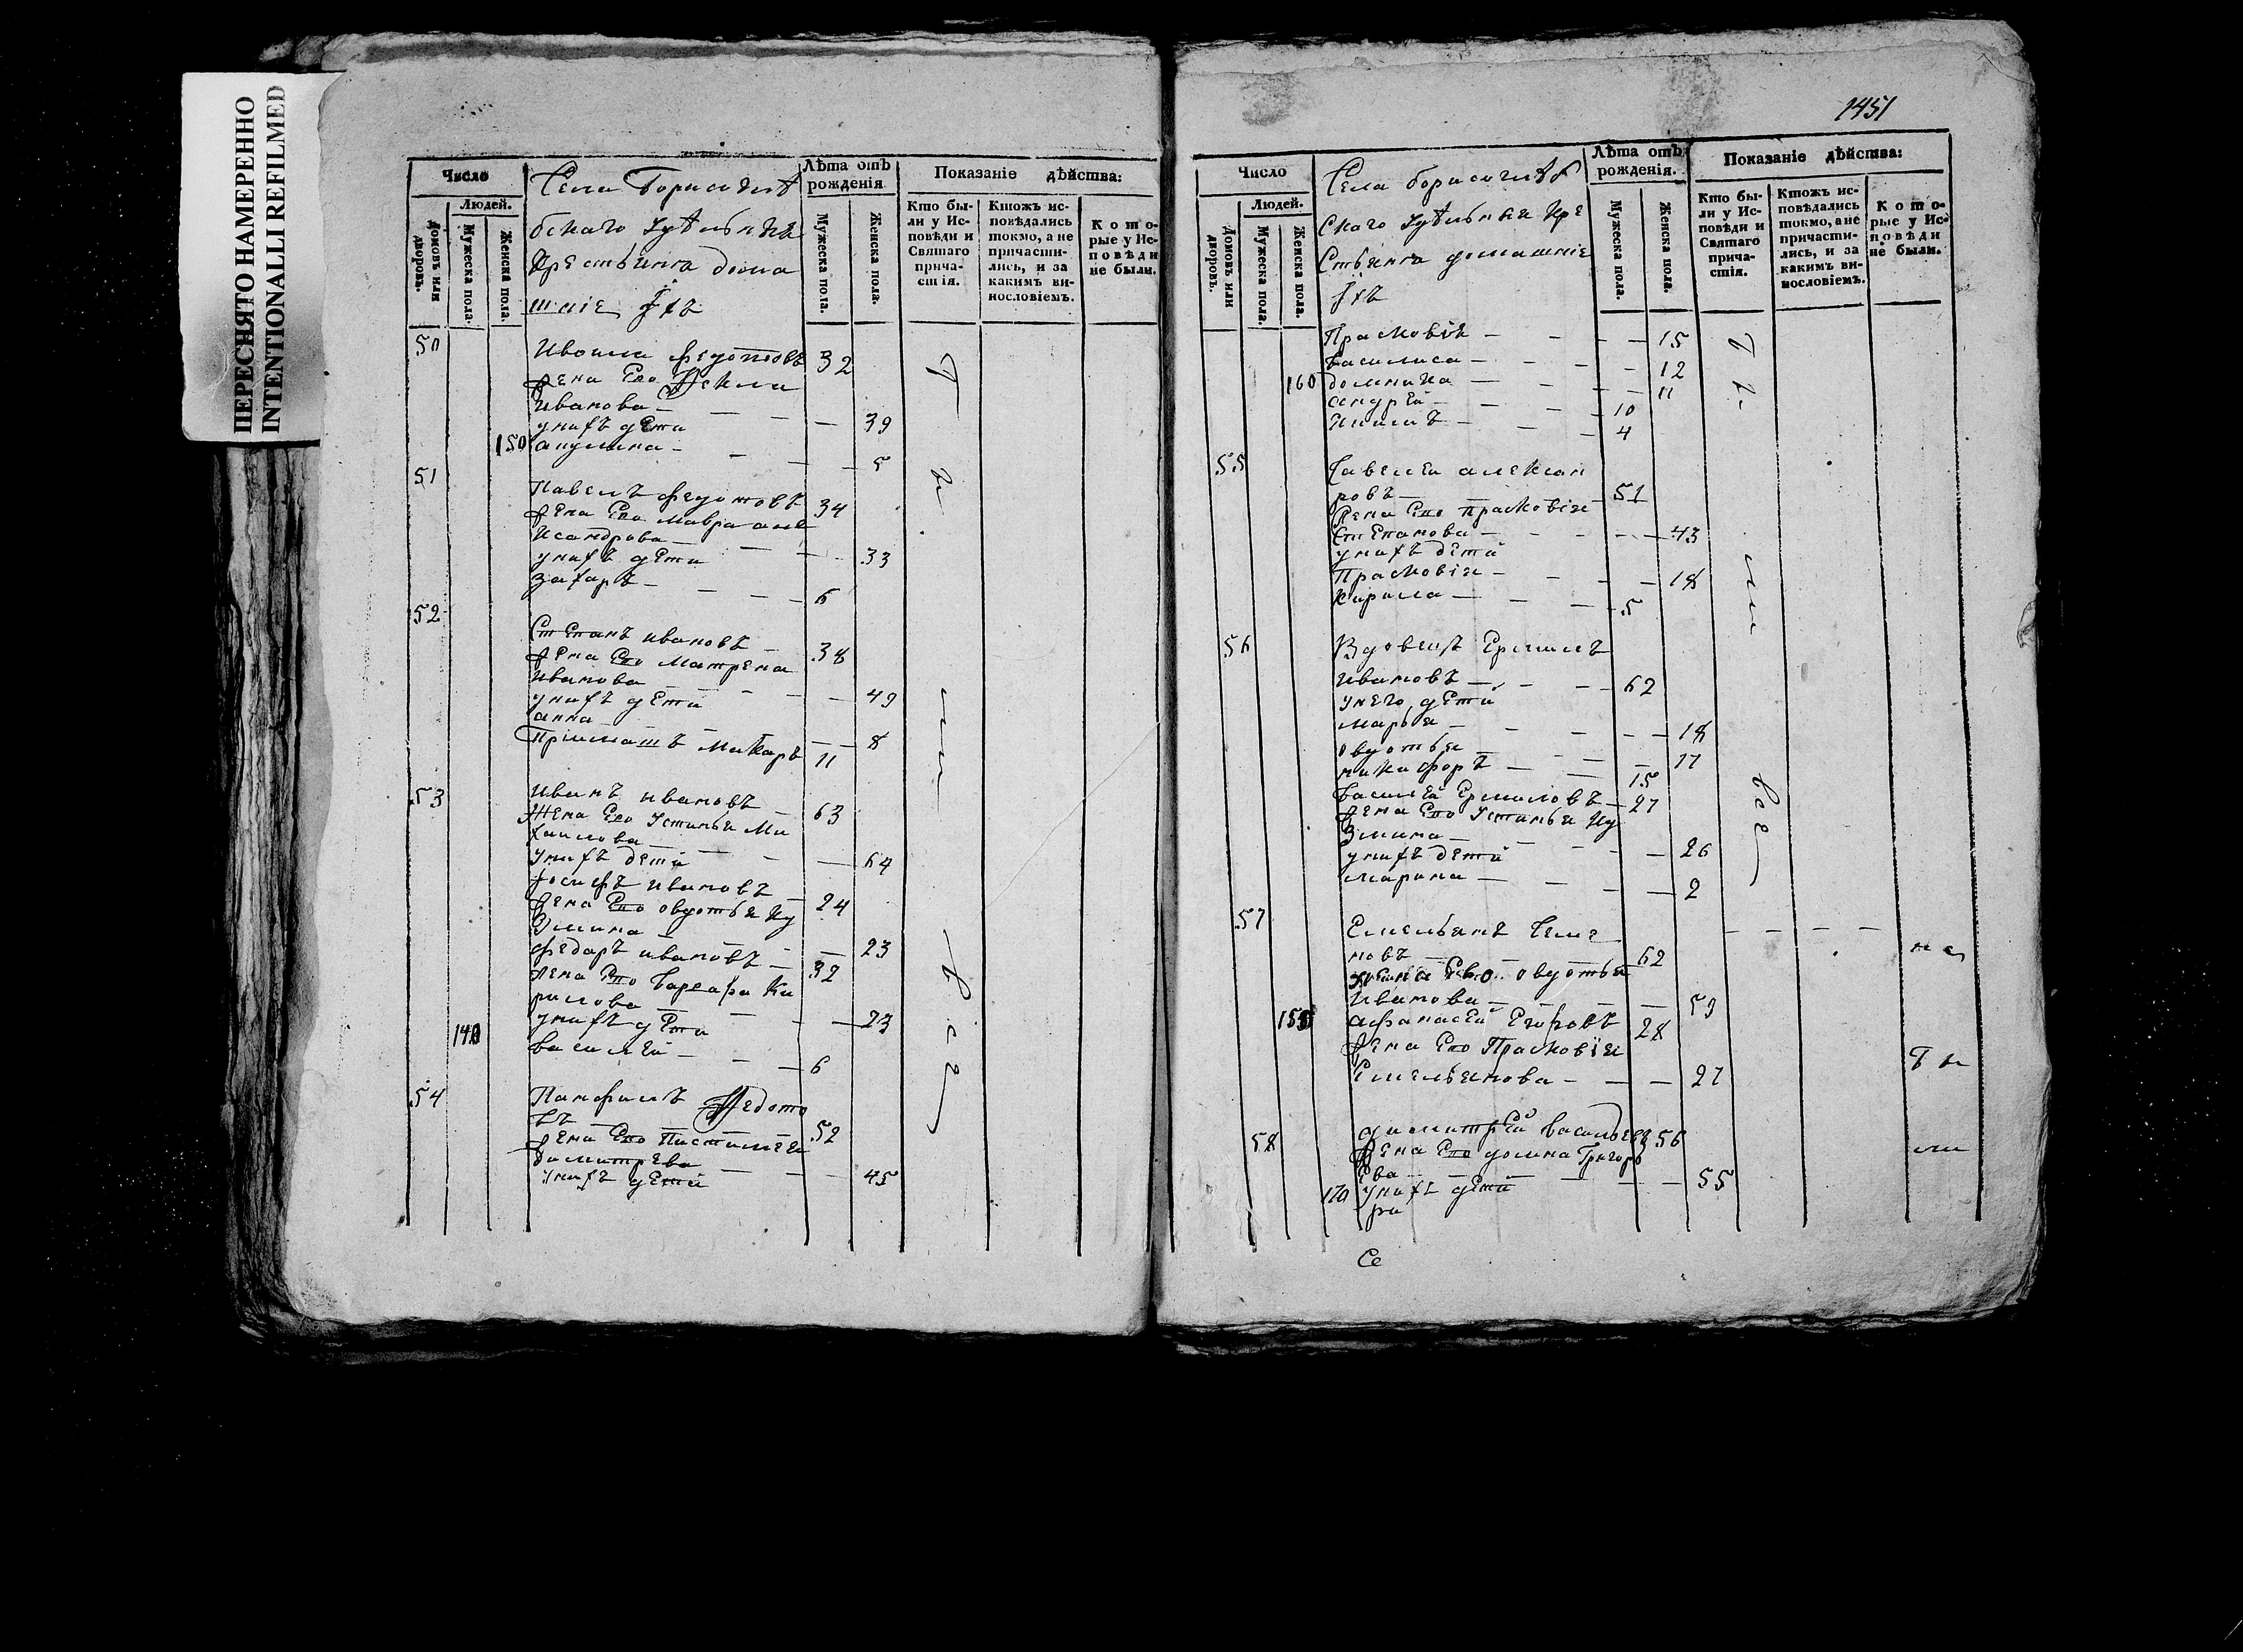 ПЕРЕСНЯТО НАМЕРЕННО
INTENTIONALLI REFILMED
Число
Людей.
Домовъ или дворовъ.
Мужеска пола.
Женска пола.
Села
бскаго
дома
шніе Ихъ
Лѣта отъ рожденія
Мужеска пола.
Женска пола.
Показаніе дѣйства:
Кто бы-
ли у Ис-
повѣди и
Святаго
прича-
стія.
Ктожъ ис-
повѣдались
токмо, а не
причасти-
лись, и за
какимъ ви-
нословіемъ.
Кото-
рые у Ис-
повѣди
не были.
50
Федотовъ 32
жена Ево
Иванова — 39
у нихъ дети
150 акулина — 5
51
Павелъ Федотовъ 34
жена Ево мавра але
ксандрова — 33
у нихъ дети
захаръ — 6
52
Степанъ ивановъ 38
жена Ево Матрена
иванова — 49
у нихъ дети
анна — 8
Пріимашъ Макаръ 11
53
иванъ ивановъ 63
Жена Ево Устинья Ми
хаилова — 64
у нихъ дети
иосифъ ивановъ — 24
жена Ево овдотья Ку
змина — 23
Федоръ ивановъ — 32
жена Ево варвара Ки
рилова — 23
у нихъ дети
140 василей — 6
54
Панфилъ Федото
въ 52
жена Ево
димитрева — 45
у нихъ дети
Бы
ли
все
1451
Число
Людей.
Домовъ или дворовъ.
Мужеска пола.
Женска пола.
Села
скаго кре
стьяня домашніе
Ихъ
Лѣта отъ рожденія.
Мужеска пола.
Женска пола.
Показаніе дѣйства:
Кто бы-
ли у Ис-
повѣди и
Святаго
прича-
стія.
Ктожъ ис-
повѣдались
токмо, а не
причасти-
лись, и за
какимъ ви-
нословіемъ.
Кото-
рые у Ис-
повѣди
не были.
Прасковія — 15
Василиса — 12
160 домника — 11
андрей — 10
4
55
Савелей алексан
ровъ — 51
жена Ево прасковія
Степанова — 43
у нихъ дети
Прасковія — 18
Кирила — 5
56
Вдовецъ Ермилъ
Ивановъ — 62
у него дети
марья — 18
овдотья — 17
никифоръ — 15
василей Ермиловъ — 27
жена Ево Устинья Ку
змина — 26
у нихъ дети
марина — 2
57
Емельянъ Семе
новъ — 62
жена Ево овдотья
Иванова — 59
афанасей Егоровъ 28
жена Ево Прасковія
Емельянова — 27
58
димитрей васильевъ 56
жена Ево домна Григорь
ева — 55
170 у нихъ дети
Бы
ли
все
не
бы
ли
Се